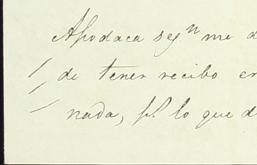 Apodaca segⁿ me d
de tener recibo en
nada, pʳ lo que d